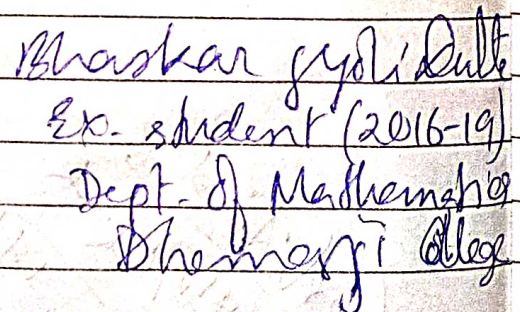 Bhaskar Jyoti Dutta
Ex. student (2016-19)
Dept. of Mathematics
Dhemaji College